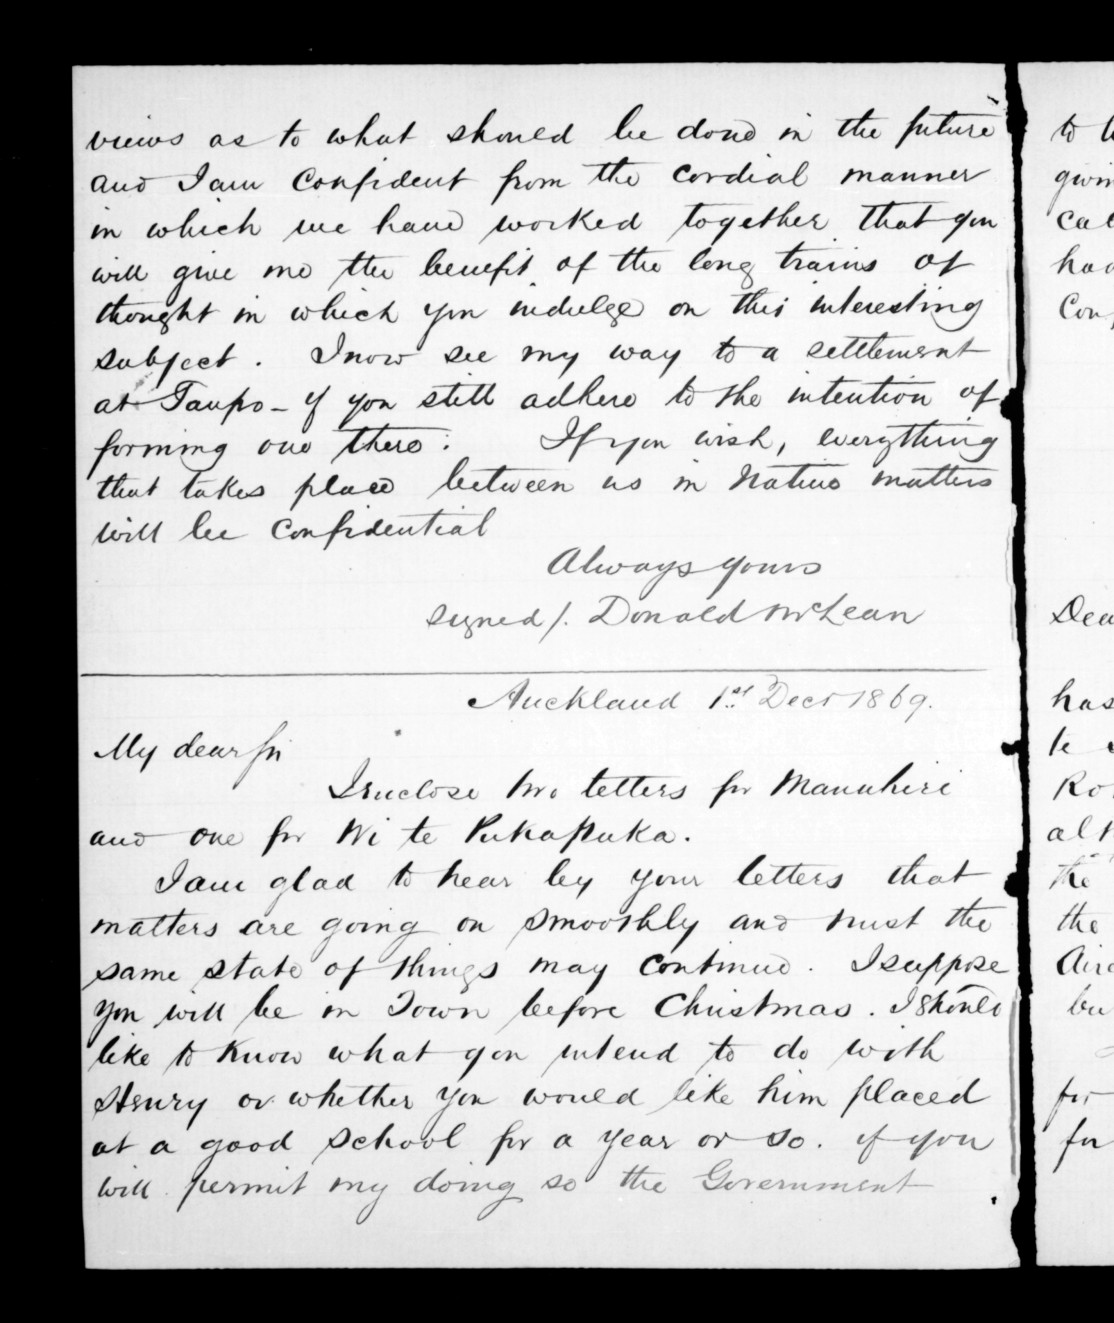 views as to what should be done in the future
and I am confident from the cordial manner
in which we have worked together that you
will give me the benefit of the long trains of
thought in which you indulge on this interesting
subject. I now see my way to a settlement
at Taupo - if you still adhere to the intention of
forming one there. If you wish, everything
that takes place between us in Native matters
will be confidential
Always yours
signed/. Donald McLean
Auckland 1st Decr 1869.
My dear Sir
I enclose two letters for Manuhiri
and one for Wi te Pukapuka.
I am glad to hear by your letters that
matters are going on smoothly and trust the
same state of things may continue. I suppose
you will be in Town before Christmas. I should
like to know what you intend to do with
Henry or whether you would like him placed
at a good school for a year or so. if you
will permit my doing so the Government
to
had
Dea
has
te
Ro
the
the
bu
for
for